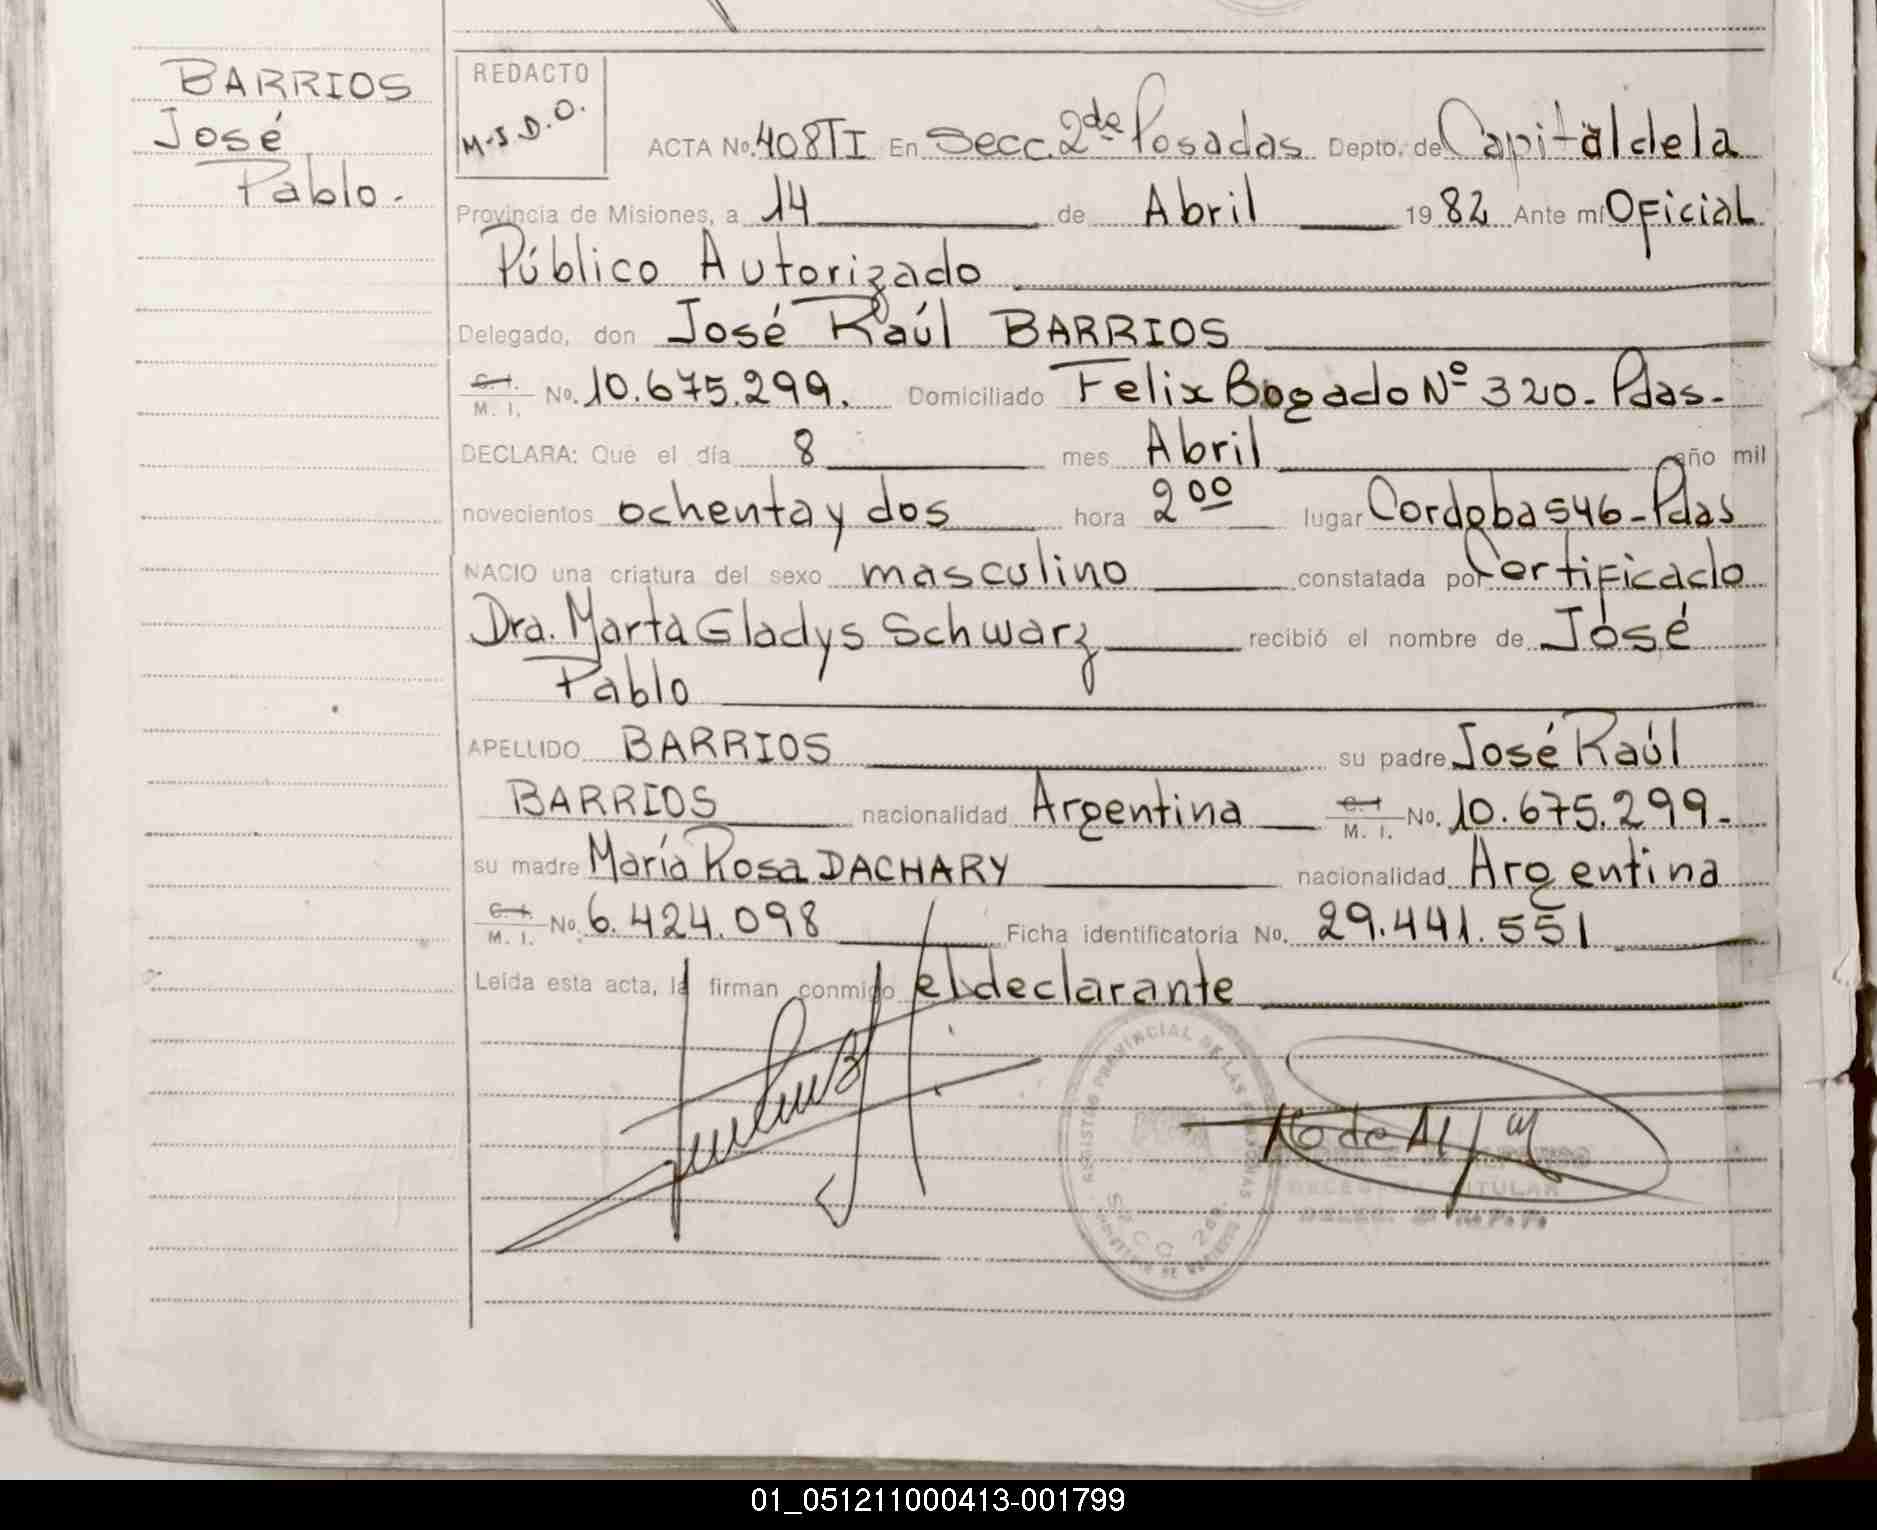 BARRIOS
José
Pablo.-
REDACTO
M.S.D.O.
ACTA No. 408TI En Secc. 2de Posadas Depto. de Capital de la
Provincia de Misiones, a 14 de Abril 1982 Ante mí Oficial
Público Autorizado
Delegado, don José Raúl BARRIOS
C. I.
M. I. No. 10.675.299. Domiciliado Felix Bogado Nº 320.- Pdas.-
DECLARA: Que el día 8 mes Abril año mil
novecientos ochenta y dos hora 2 00 lugar Cordoba 546 - Pdas
NACIO una criatura del sexo masculino constatada por Certificado
Dra. Marta Gladys Schwarz recibió el nombre de José
Pablo
APELLIDO BARRIOS su padre José Raúl
BARRIOS nacionalidad Argentina C. I. M. I. No. 10.675.299.-
su madre María Rosa DACHARY nacionalidad Argentina
C. I. M. I. No. 6.424.098 Ficha identificatoria No. 29.441.551
Leída esta acta, la firman conmigo el declarante
REGISTRO PROVINCIAL DE LAS PERSONAS
SECC. 2da.
PROVINCIA DE MISIONES
TITULAR
01_051211000413-001799